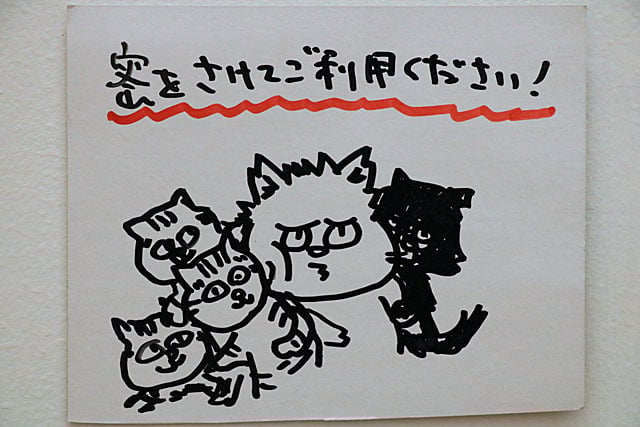 密をさけてご利用ください！